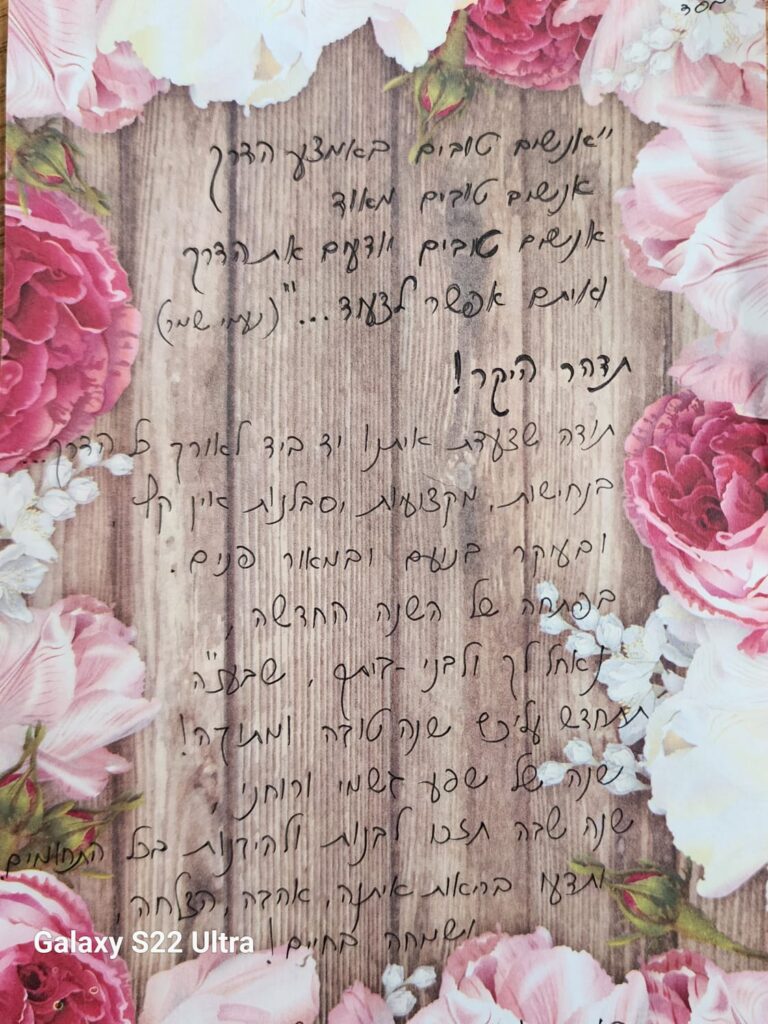 בס"ד
"אנשים טובים באמצע הדרך
אנשים טובים מאוד
אנשים טובים יודעים את הדרך
ואיתם אפשר לצעוד..." (נעמי שמר)
תדהר היקר!
תודה שצעדת איתנו יד ביד לאורך כל הדרך...
בנחישות, מקצועיות, וסבלנות אין קץ
ובעיקר בנועם ובמאור פנים.
בפתחה של השנה החדשה,
נאחל לך ולבני-ביתך, שבעז"ה
תתחדש עליכם שנה טובה ומתוקה!
שנה של שפע גשמי ורוחני,
שנה שבה תזכו לבנות ולהיבנות בכל התחומים.
ותדעו בריאות איתנה, אהבה, הצלחה,
ושמחה בחיים!
Galaxy S22 Ultra